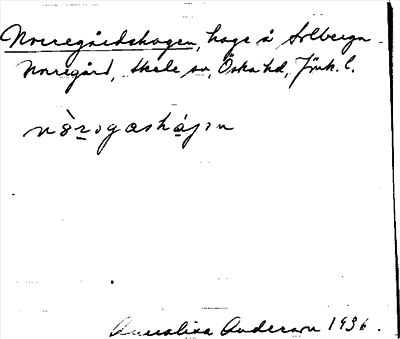 Norregårdshagen, hage å Solberga
Norregård, Skede sn, Östra hd, Jönk. l.
nòrogashájɜn
Annalisa Anderson 1936.